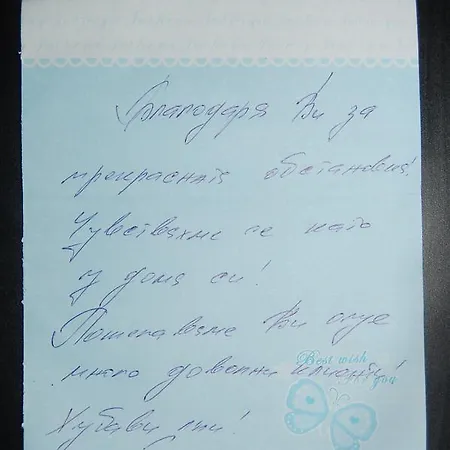 Благодаря Ви за
прекрасната обстановка!
Чувствахме се като
у дома си!
Пожелаваме Ви още
много доволни клиенти!
Best wish
you
Хубави дни!